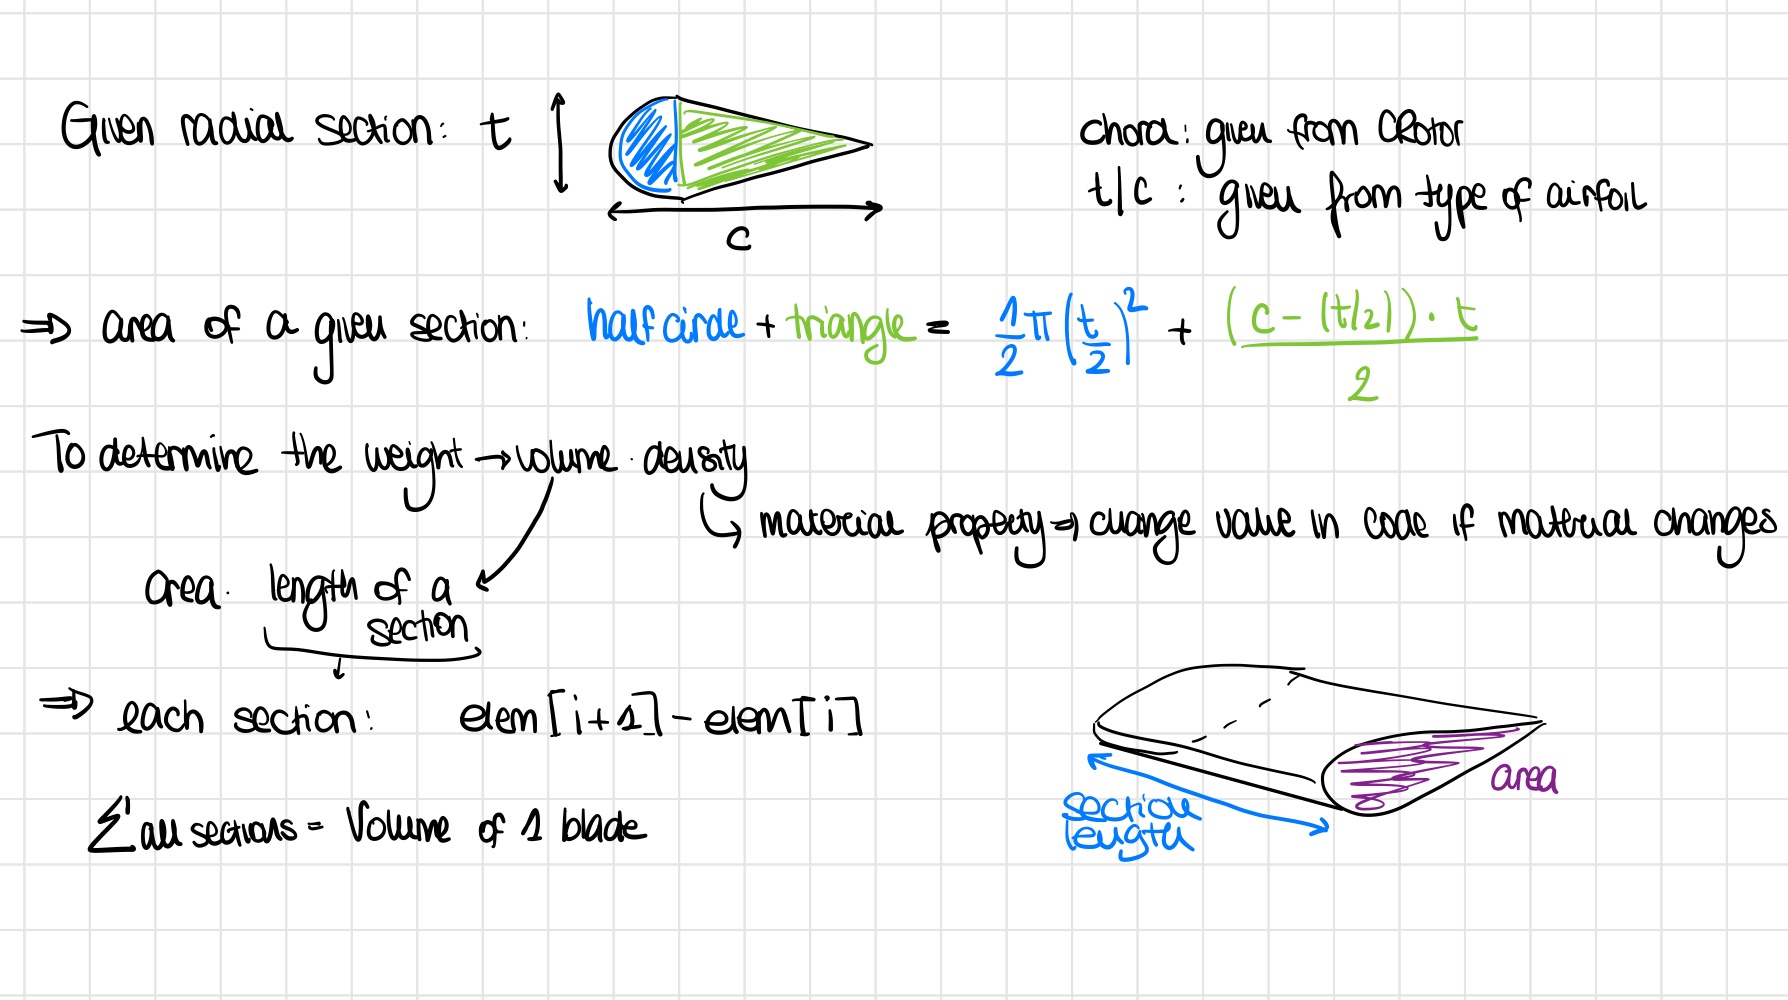 Given radial section: t
c
chord: given from CRotor
t/c : given from type of airfoil
⇒ area of a given section: half circle + triangle = 1/2 π (t/2)² + ((c - (t/2)) · t)/2
To determine the weight → volume · density
↳ material property ⇒ change value in code if material changes
area · length of a
section
⇒ each section: elem[i+1] - elem[i]
∑ all sections = Volume of 1 blade
section
length
area